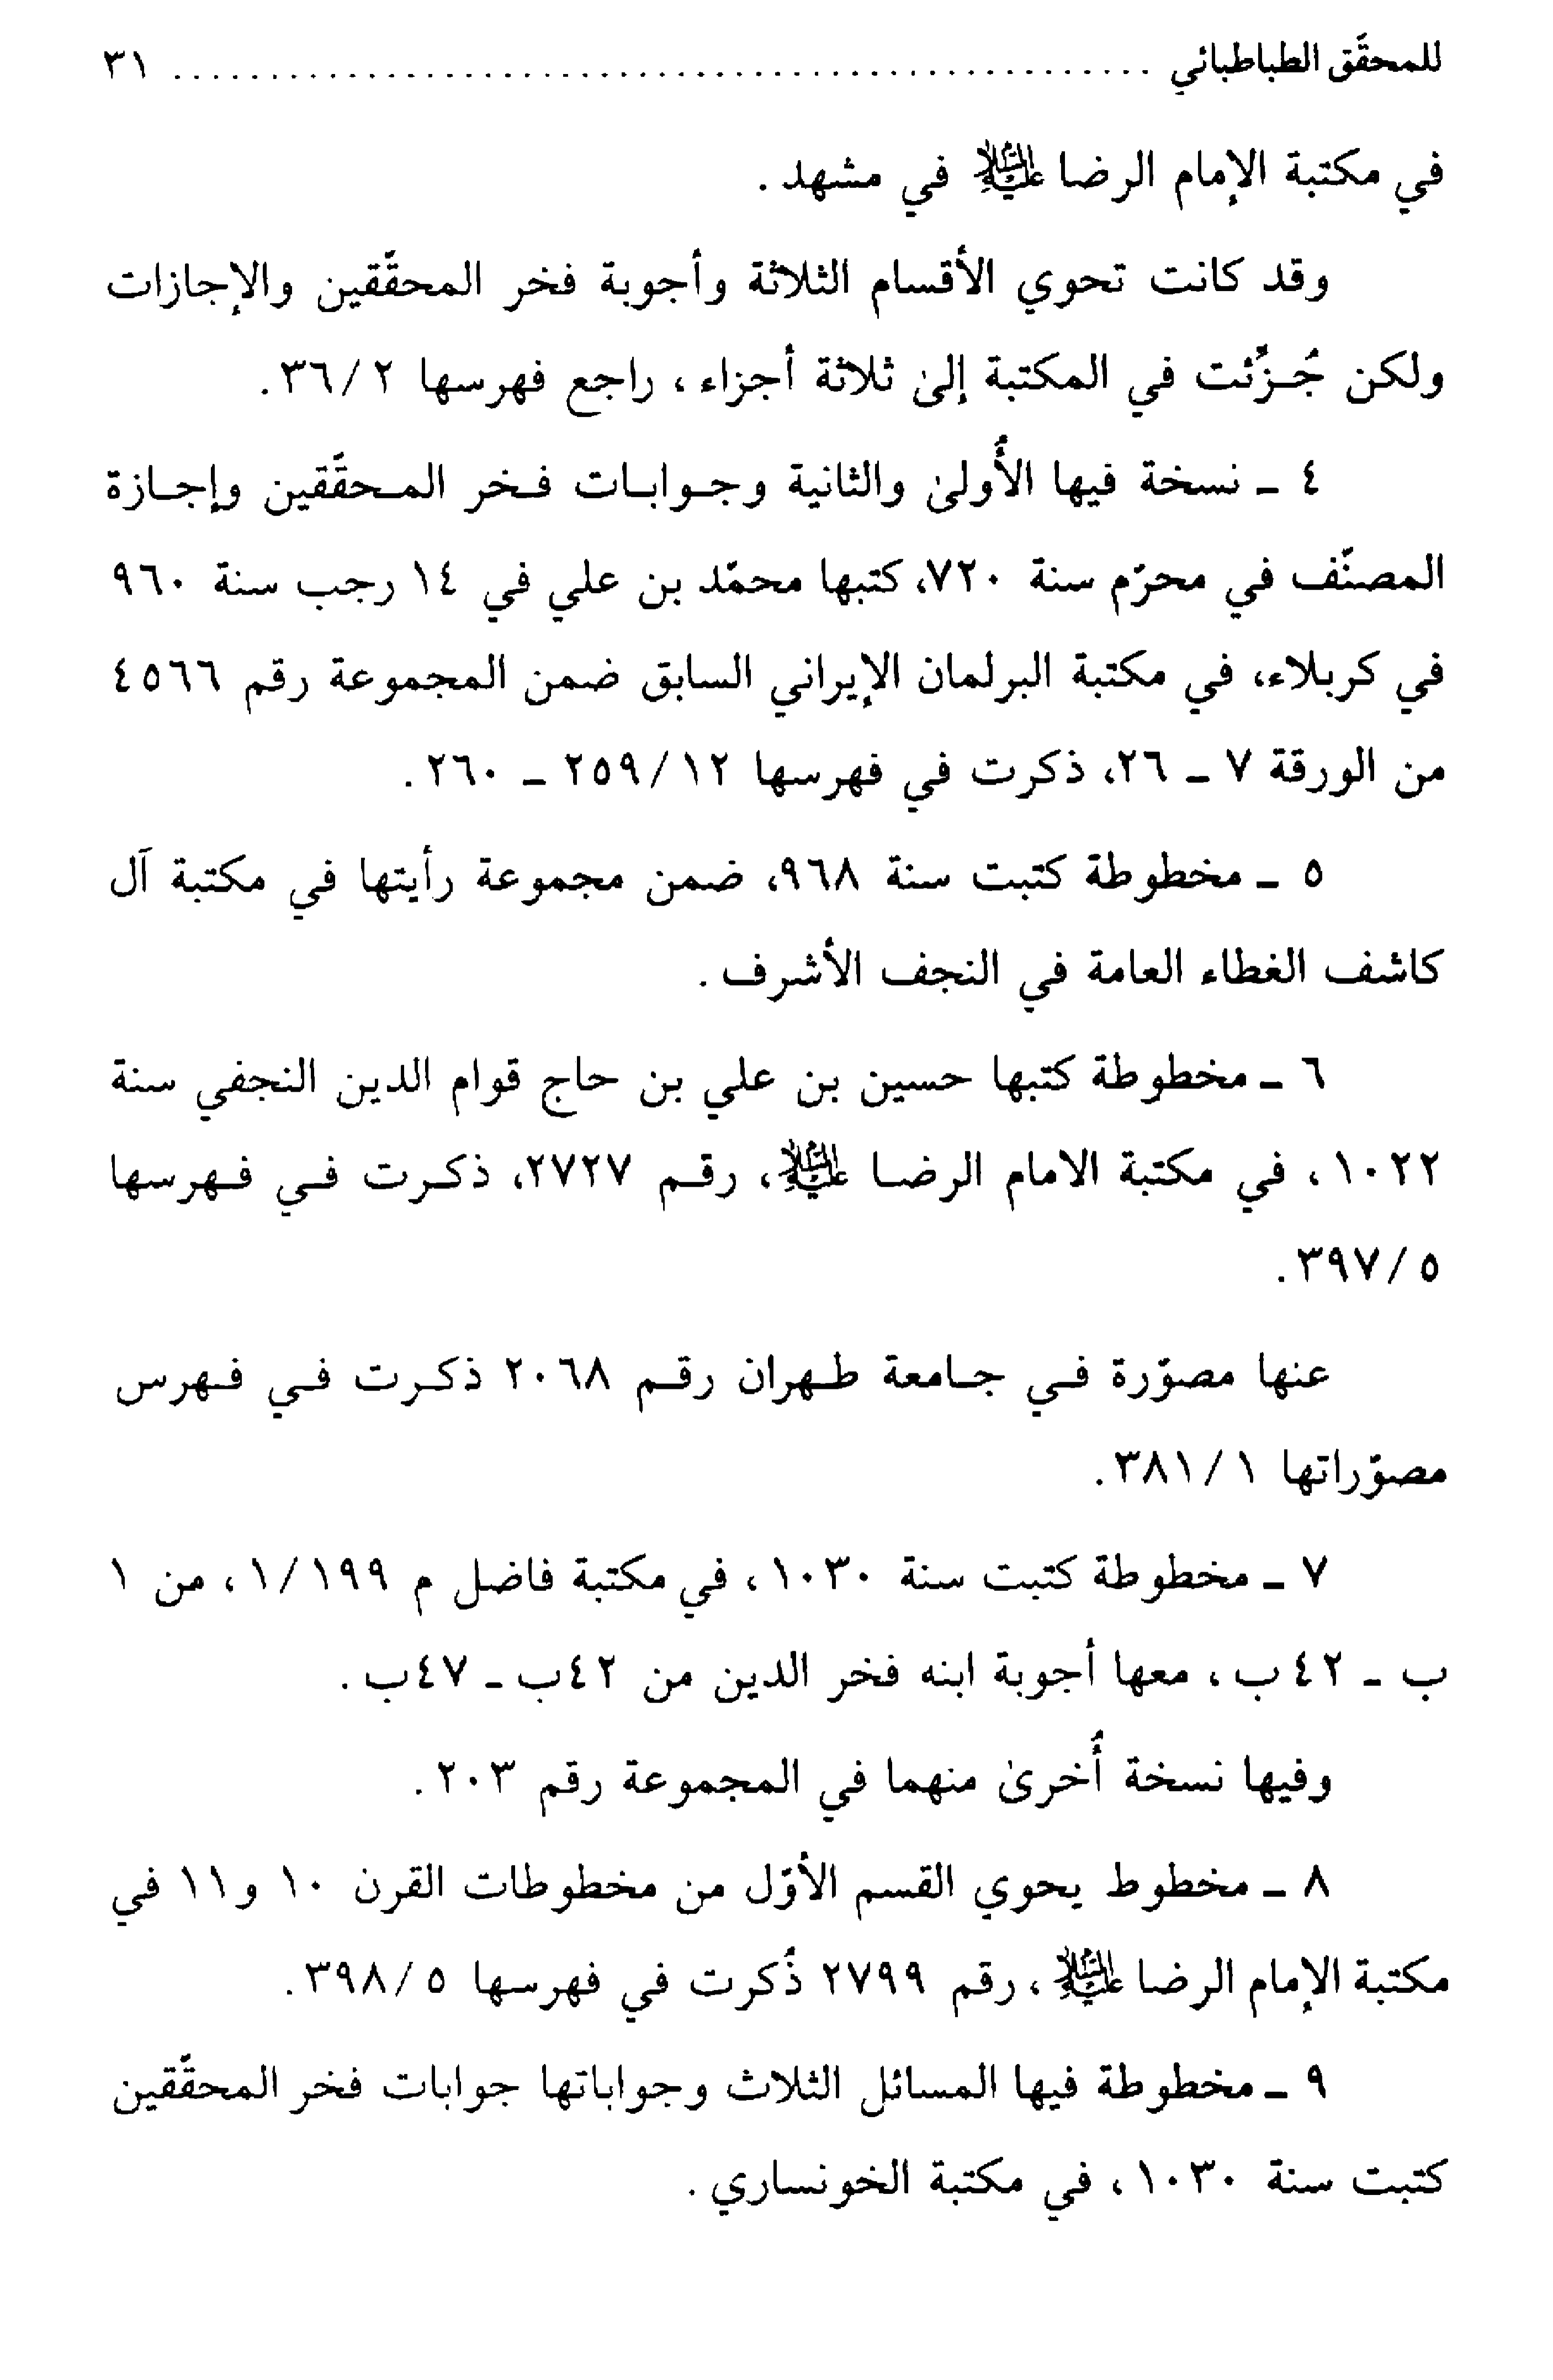 للمحقّق الطباطبائي ........................................ ٣١
في مكتبة الإمام الرضا عليه السلام في مشهد .
وقد كانت تحوي الأقسام الثلاثة وأجوبة فخر المحقّقين والإجازات
ولكن جُـزِّئت في المكتبة إلىٰ ثلاثة أجزاء ، راجع فهرسها ٢ / ٣٦ .
٤ ـ نسخة فيها الأُولىٰ والثانية وجـوابـات فـخر المـحقّقين وإجـازة
المصنّف في محرّم سنة ٧٢٠، كتبها محمّد بن علي في ١٤ رجب سنة ٩٦٠
في كربلاء، في مكتبة البرلمان الإيراني السابق ضمن المجموعة رقم ٤٥٦٦
من الورقة ٧ ـ ٢٦، ذكرت في فهرسها ١٢ / ٢٥٩ ـ ٢٦٠ .
٥ ـ مخطوطة كتبت سنة ٩٦٨، ضمن مجموعة رأيتها في مكتبة آل
كاشف الغطاء العامة في النجف الأشرف .
٦ ـ مخطوطة كتبها حسين بن علي بن حاج قوام الدين النجفي سنة
١٠٢٢ ، في مكتبة الامام الرضـا عليه السلام ، رقـم ٢٧٢٧، ذكـرت فـي فـهرسها
٥ / ٣٩٧ .
عنها مصوّرة فـي جـامعة طـهران رقـم ٢٠٦٨ ذكـرت فـي فـهرس
مصوّراتها ١ / ٣٨١ .
٧ ـ مخطوطة كتبت سنة ١٠٣٠ ، في مكتبة فاضل م ١٩٩ / ١ ، من ١
ب ـ ٤٢ ب ، معها أجوبة ابنه فخر الدين من ٤٢ب ـ ٤٧ب .
وفيها نسخة أُخرىٰ منهما في المجموعة رقم ٢٠٣ .
٨ ـ مخطوط يحوي القسم الأوّل من مخطوطات القرن ١٠ و١١ في
مكتبة الإمام الرضا عليه السلام ، رقم ٢٧٩٩ ذُكرت في فهرسها ٥ / ٣٩٨ .
٩ ـ مخطوطة فيها المسائل الثلاث وجواباتها جوابات فخر المحقّقين
كتبت سنة ١٠٣٠ ، في مكتبة الخونساري .